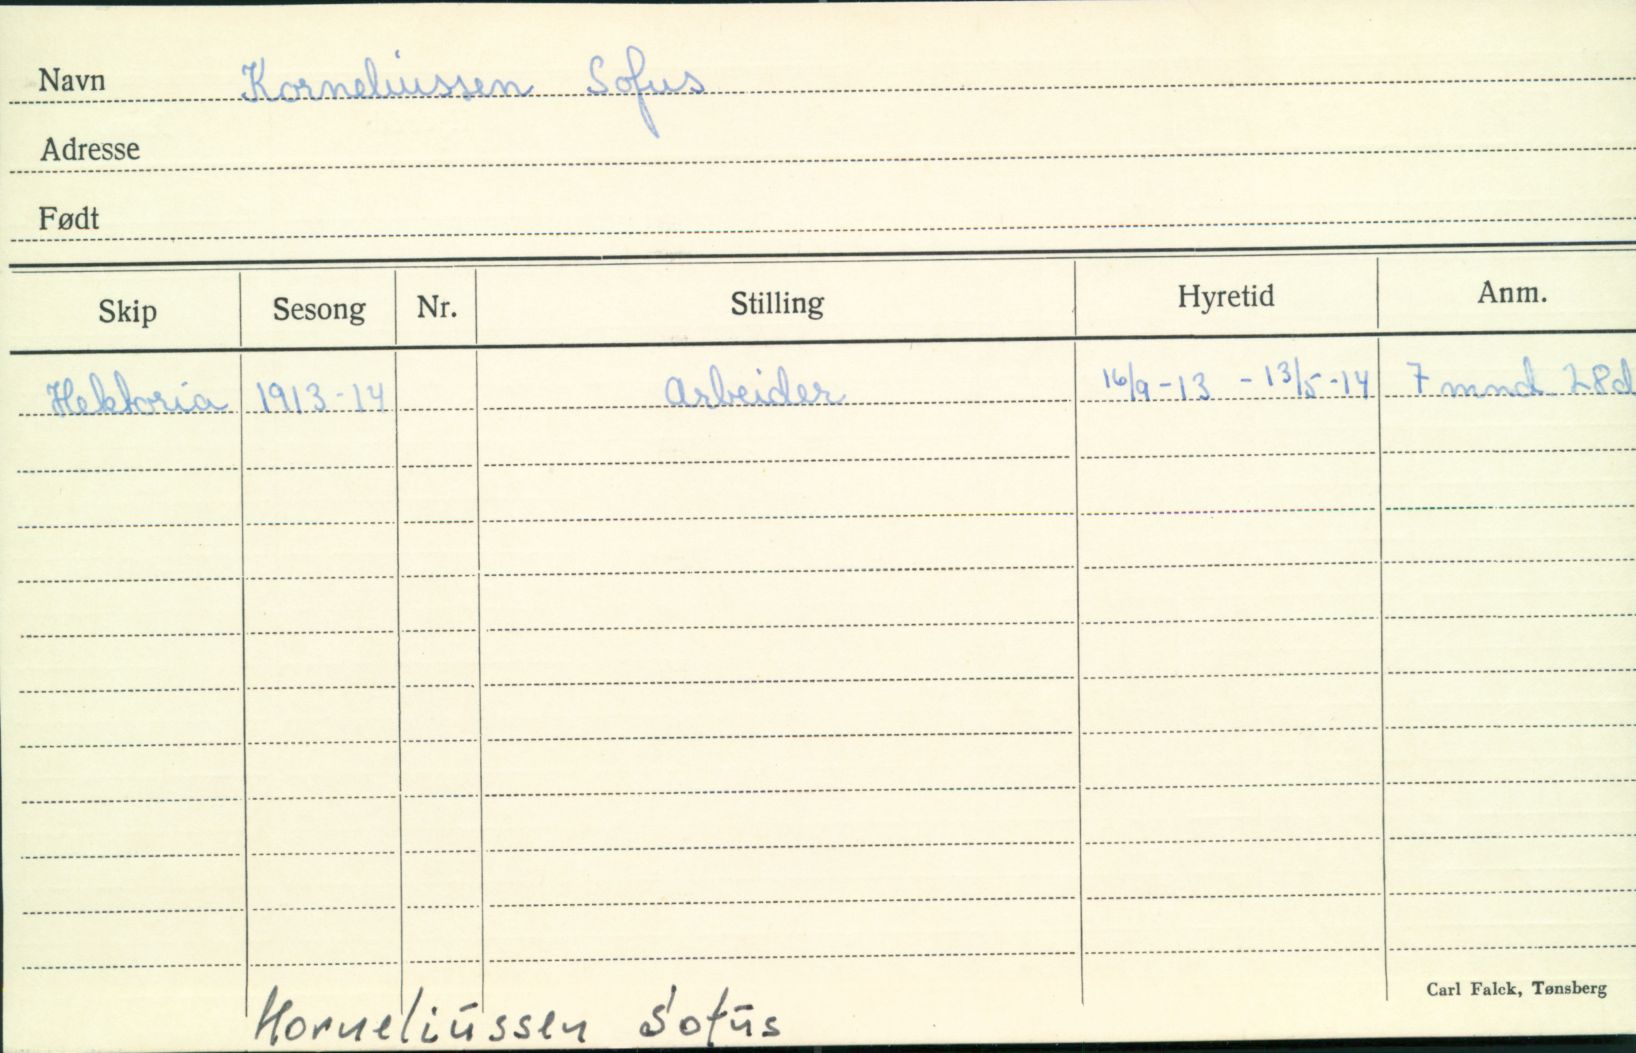 Navn Korneliussen Sofus
Adresse
Født
Skip Sesong Nr. Stilling Hyretid Anm.
Hektoria 1913-14 Arbeider 16/9-13 - 13/5-14 7 mnd 28d
Carl Falck, Tønsberg
Korneliussen Sofus